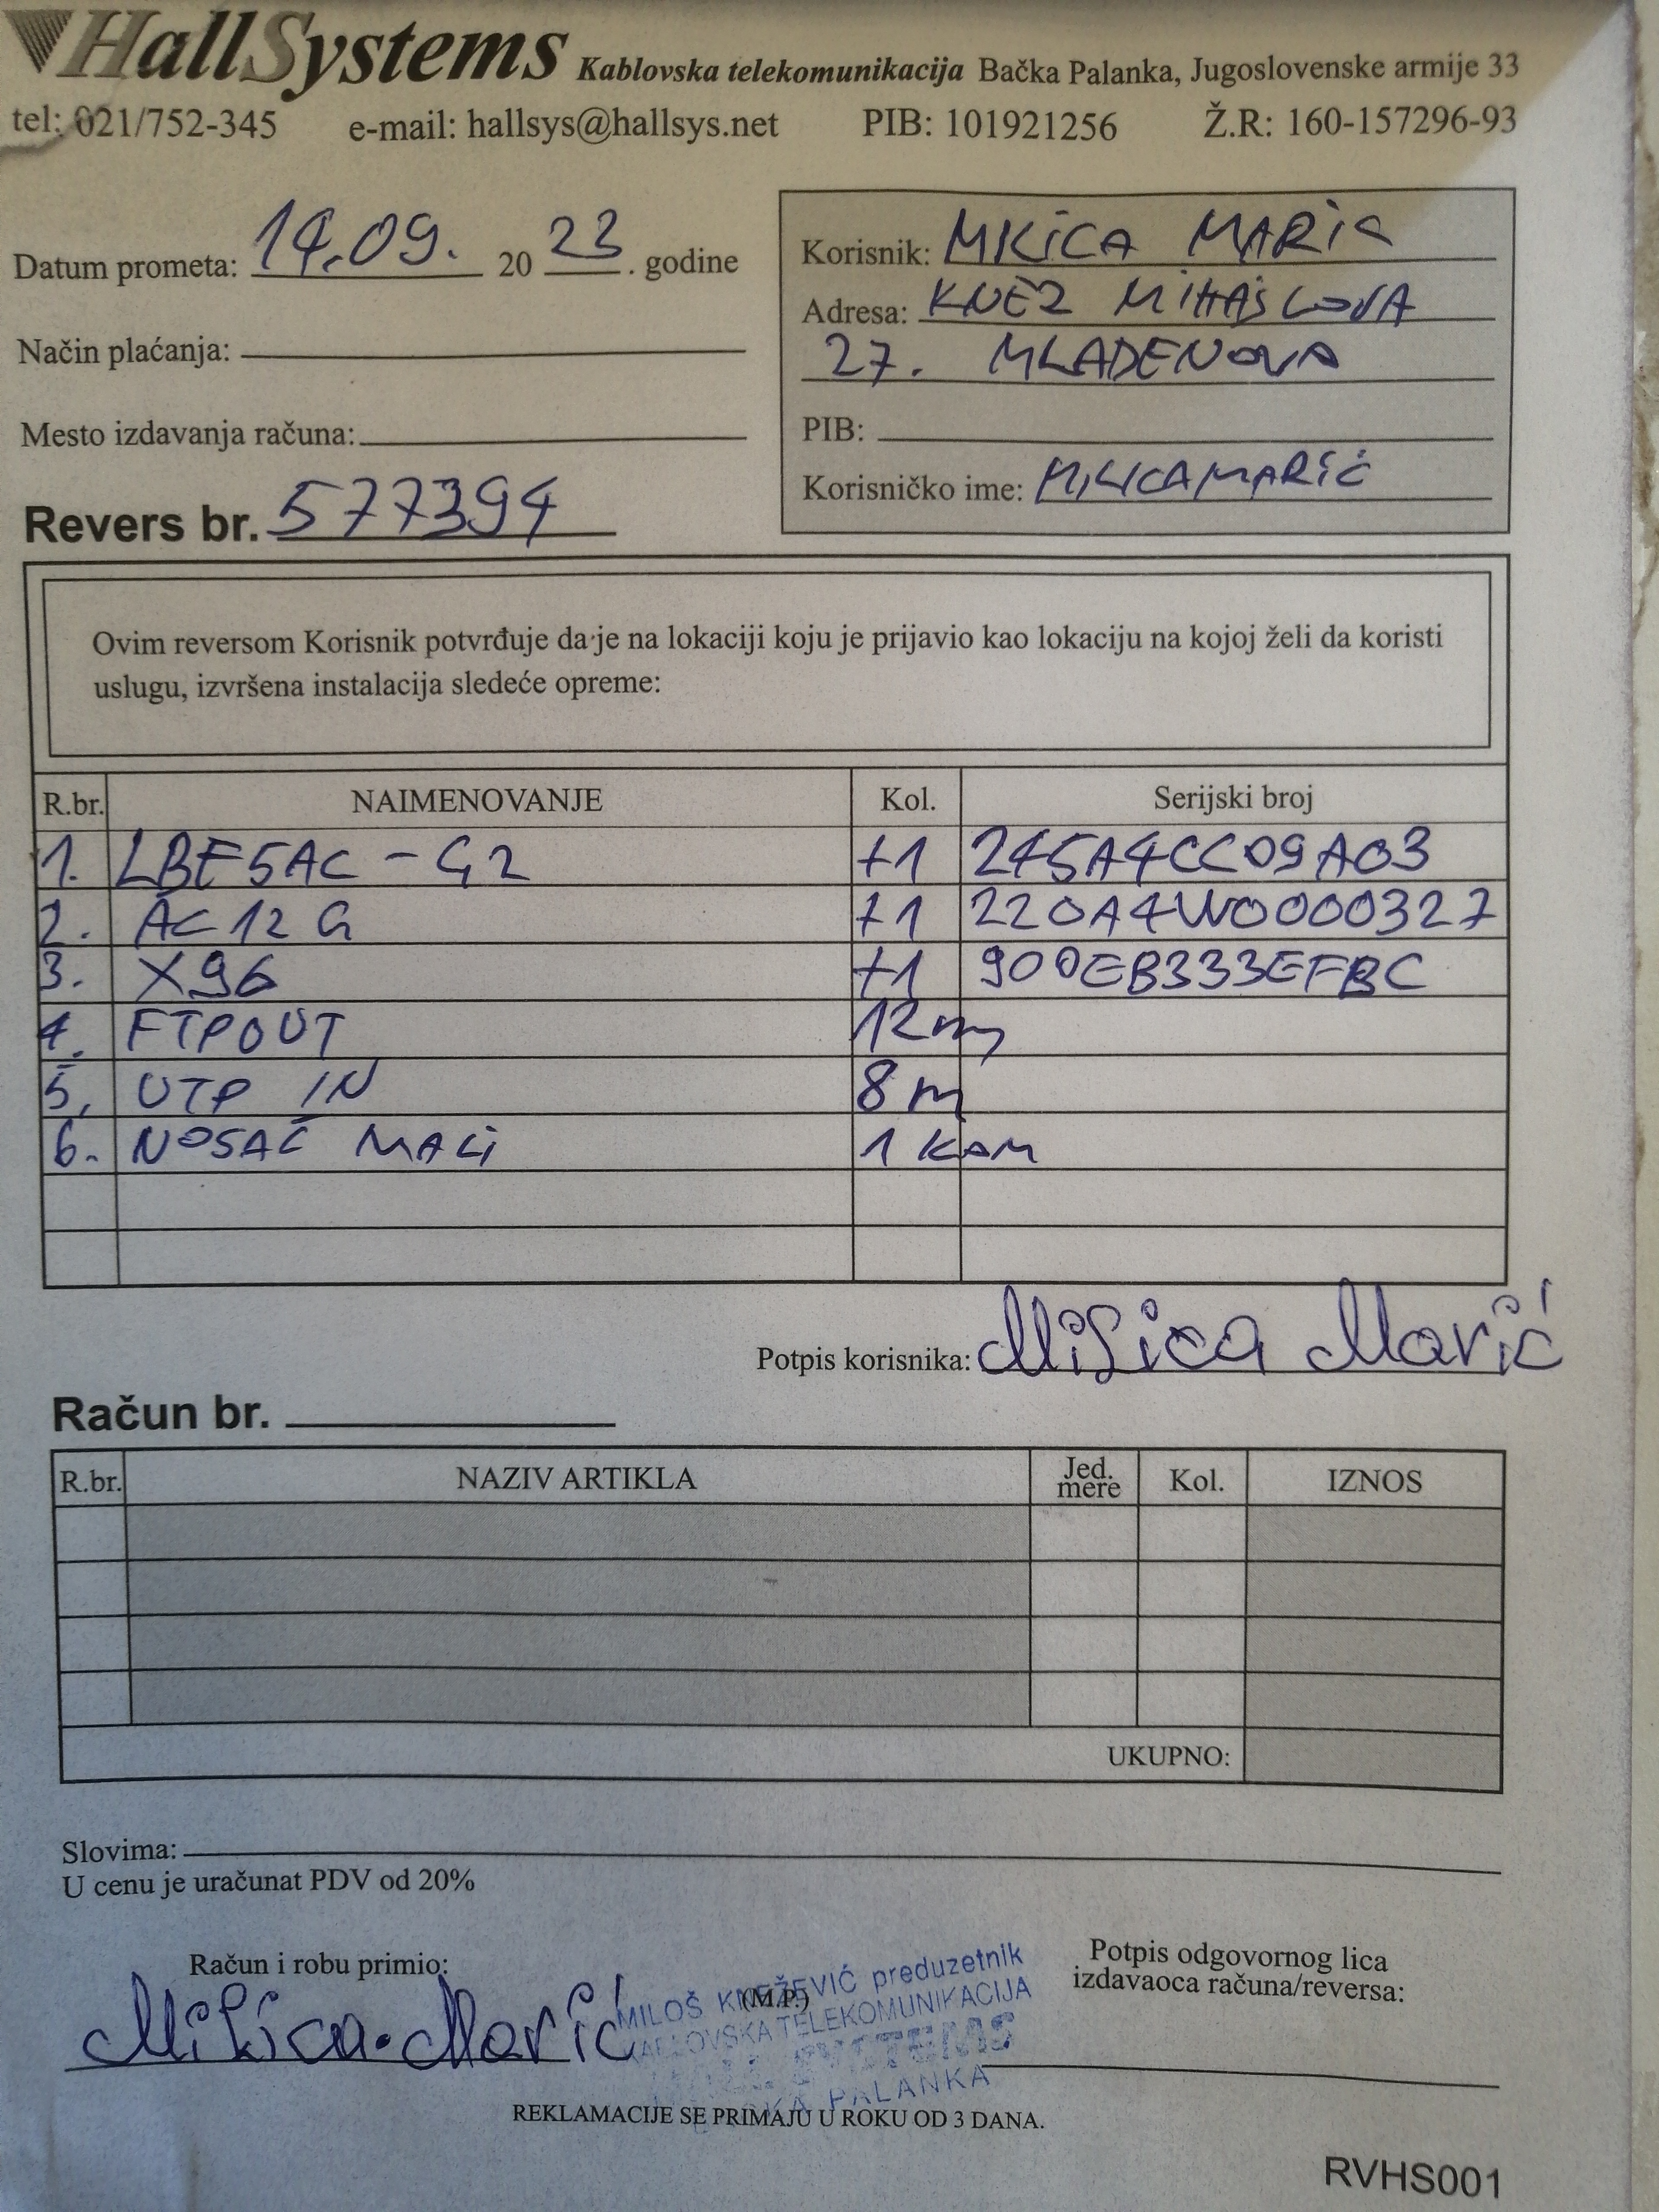 HallSystems Kablovska telekomunikacija Bačka Palanka, Jugoslovenske armije 33
tel: 021/752-345 e-mail: hallsys@hallsys.net PIB: 101921256 Ž.R: 160-157296-93
Datum prometa: 14.09. 20 23 . godine
Način plaćanja:
Mesto izdavanja računa:
Revers br. 577394
Korisnik: MILICA MARIĆ
Adresa: KNEZ MIHAJLOVA
27. MLADENOVO
PIB:
Korisničko ime: MILICAMARIĆ
Ovim reversom Korisnik potvrđuje da je na lokaciji koju je prijavio kao lokaciju na kojoj želi da koristi
uslugu, izvršena instalacija sledeće opreme:
R.br. NAIMENOVANJE Kol. Serijski broj
1. LBE5AC-G2 +1 245A4CC09A03
2. AC12G +1 220A4W0000327
3. X96 +1 900EB333EFBC
4. FTPOUT 12m
5. UTP IN 8m
6. NOSAČ MALI 1 KOM
Potpis korisnika: Milica Marić
Račun br.
R.br. NAZIV ARTIKLA Jed. mere Kol. IZNOS
UKUPNO:
Slovima:
U cenu je uračunat PDV od 20%
Račun i robu primio:
Milica Marić
(M.P.)
MILOŠ KNEŽEVIĆ preduzetnik
KABLOVSKA TELEKOMUNIKACIJA
SYSTEMS
PALANKA
Potpis odgovornog lica
izdavaoca računa/reversa:
REKLAMACIJE SE PRIMAJU U ROKU OD 3 DANA.
RVHS001